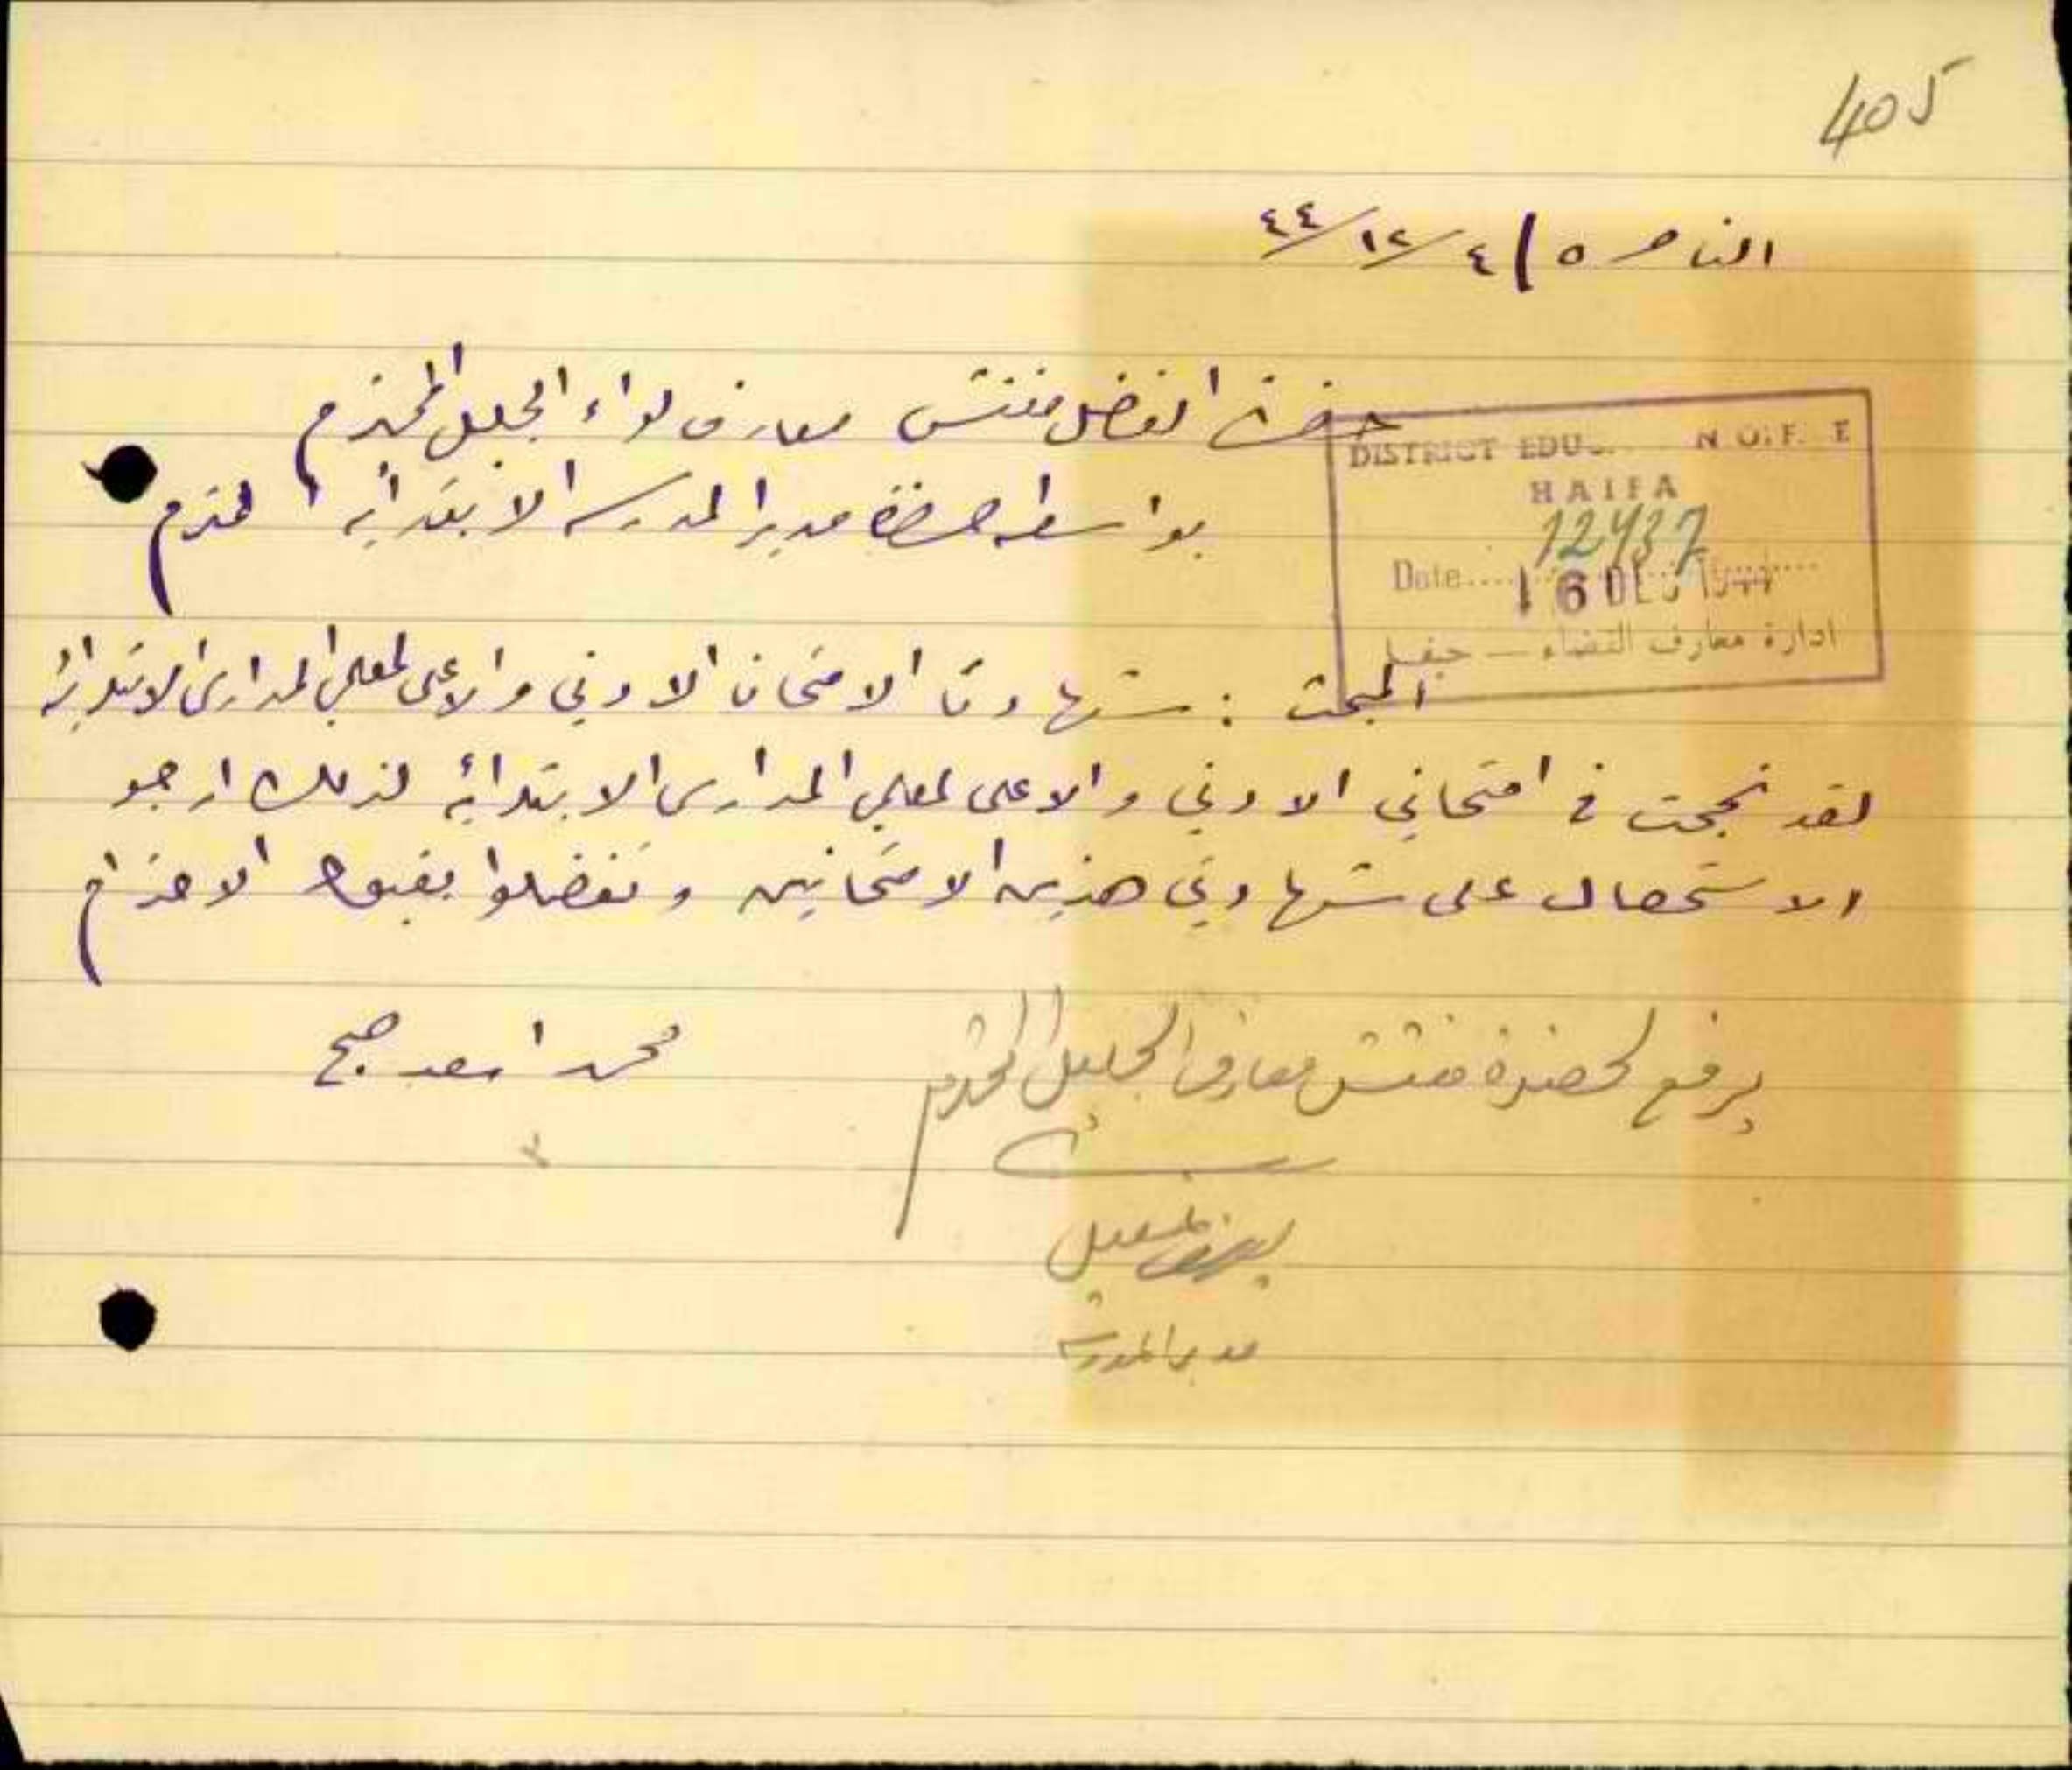 405
الناصره / ٤/١٢/٤٤
حضرة الفاضل مفتش معارف لواء الجليل المحترم
بواسطه حضرة مدير المدرسه الابتدائيه المحترم
DISTRICT EDU N OFF E
HAIFA
12437
Date 16 DEC 1944
ادارة معارف القضاء — حيفا
المبحث : شهادتا الامتحان الادنى والاعلى لمعلمي المدارس الابتدائيه
لقد نجحت في امتحاني الادنى والاعلى لمعلمي المدارس الابتدائيه لذلك ارجو
الاستحصال على شهادتي هذين الامتحانين وتفضلوا بقبول الاحترام
محمد اسعد صبح
يرفع لحضرة مفتش معارف الجليل المحترم
مدير المدرسه